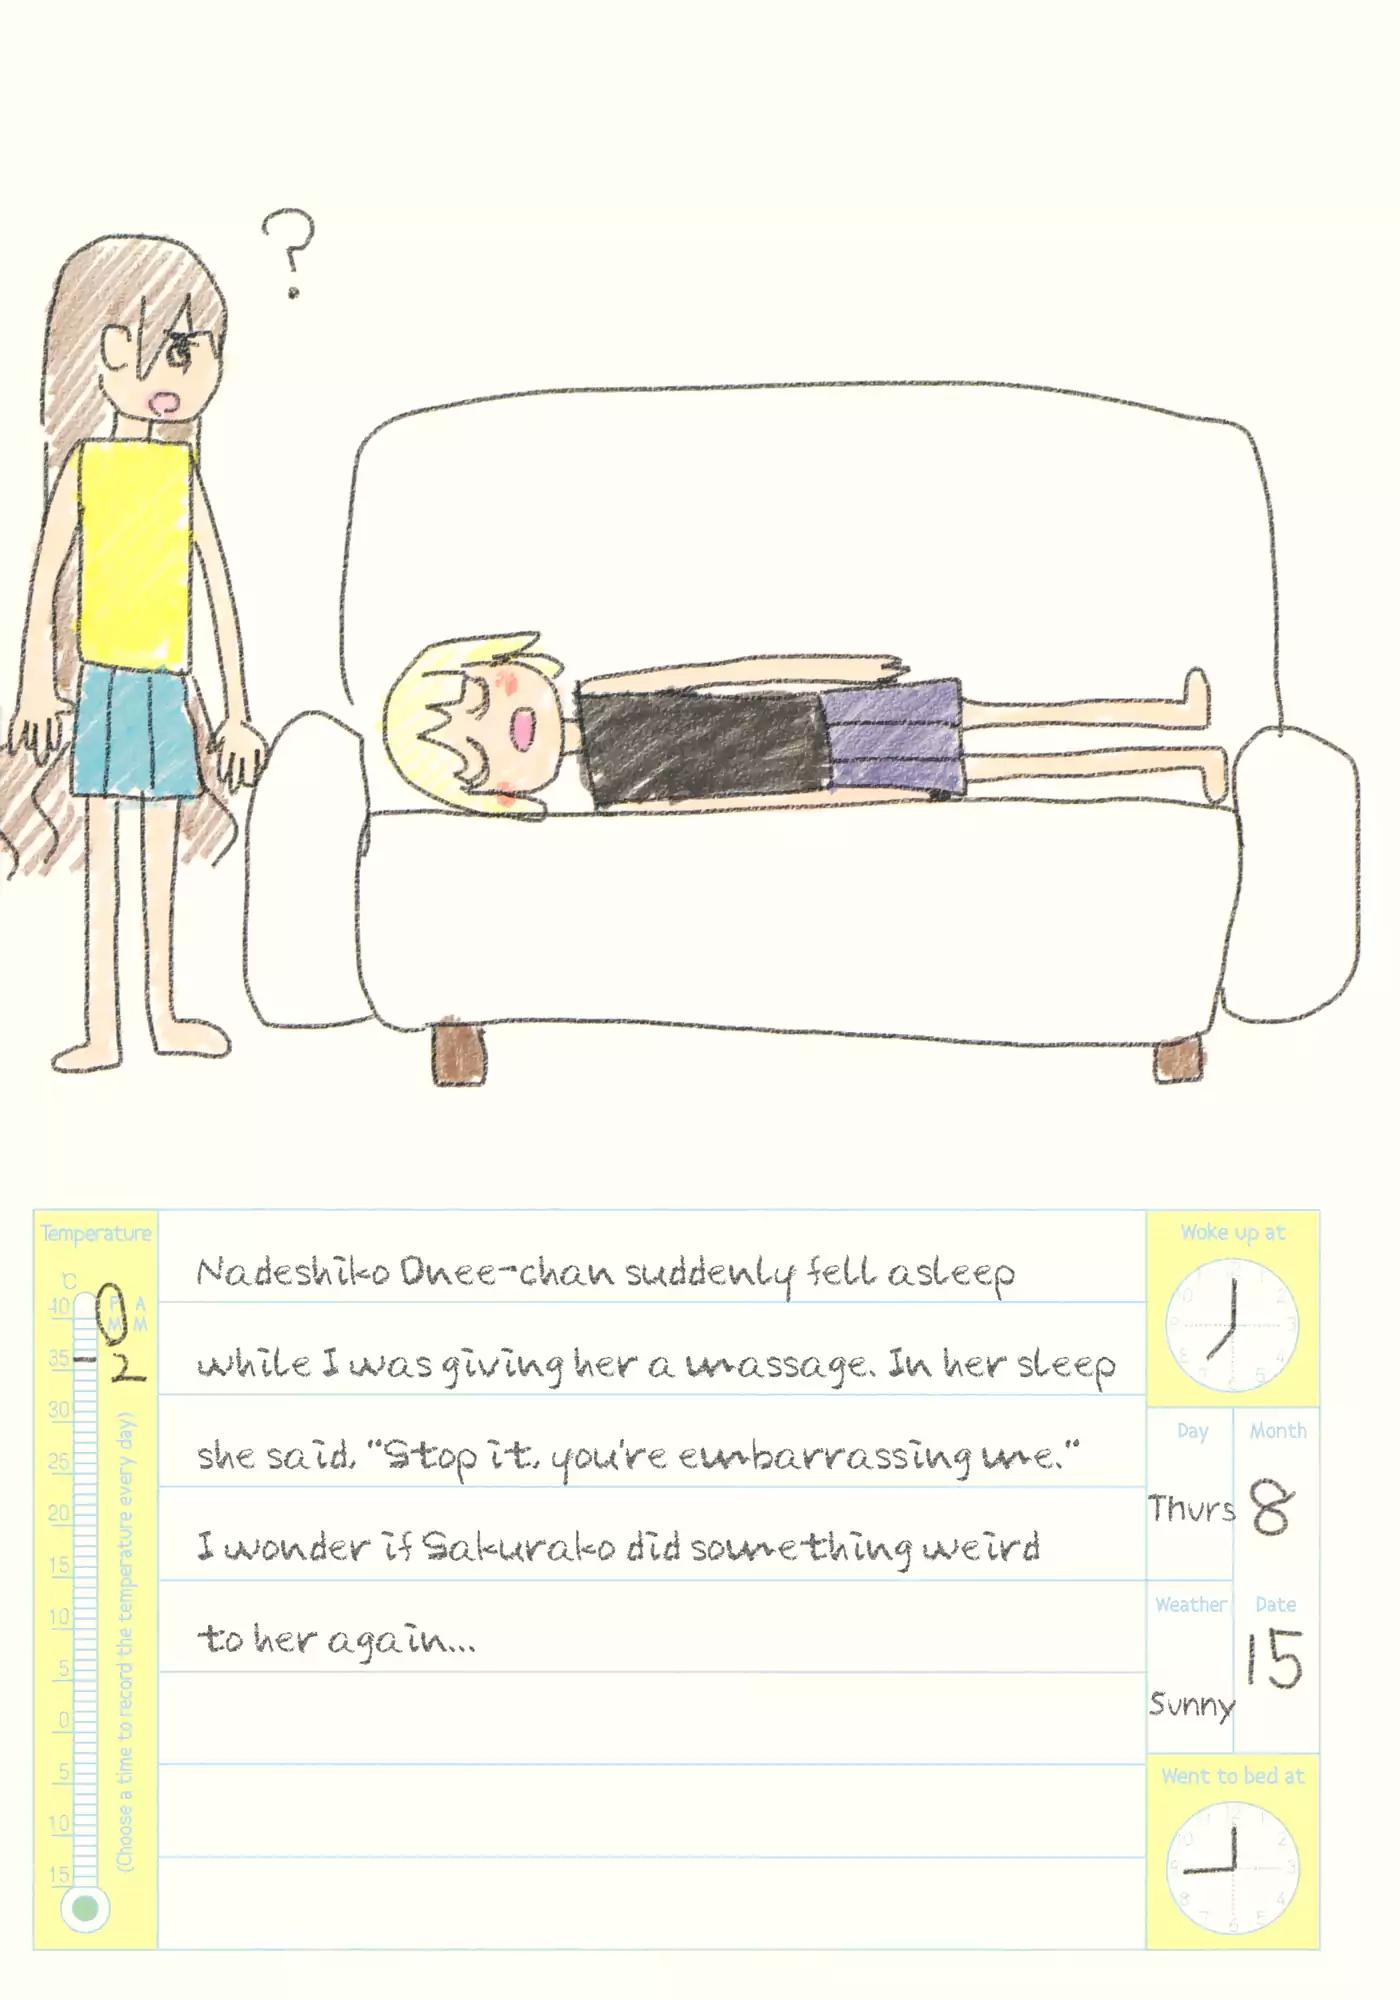 ?
Temperature
℃
P M
A M
2
40
35
30
25
20
15
10
5
0
5
10
15
(Choose a time to record the temperature every day)
Nadeshiko Onee-chan suddenly fell asleep
while I was giving her a massage. In her sleep
she said, "Stop it, you're embarrassing me."
I wonder if Sakurako did something weird
to her again...
Woke up at
Day
Thurs
Month
8
Weather
Sunny
Date
15
Went to bed at